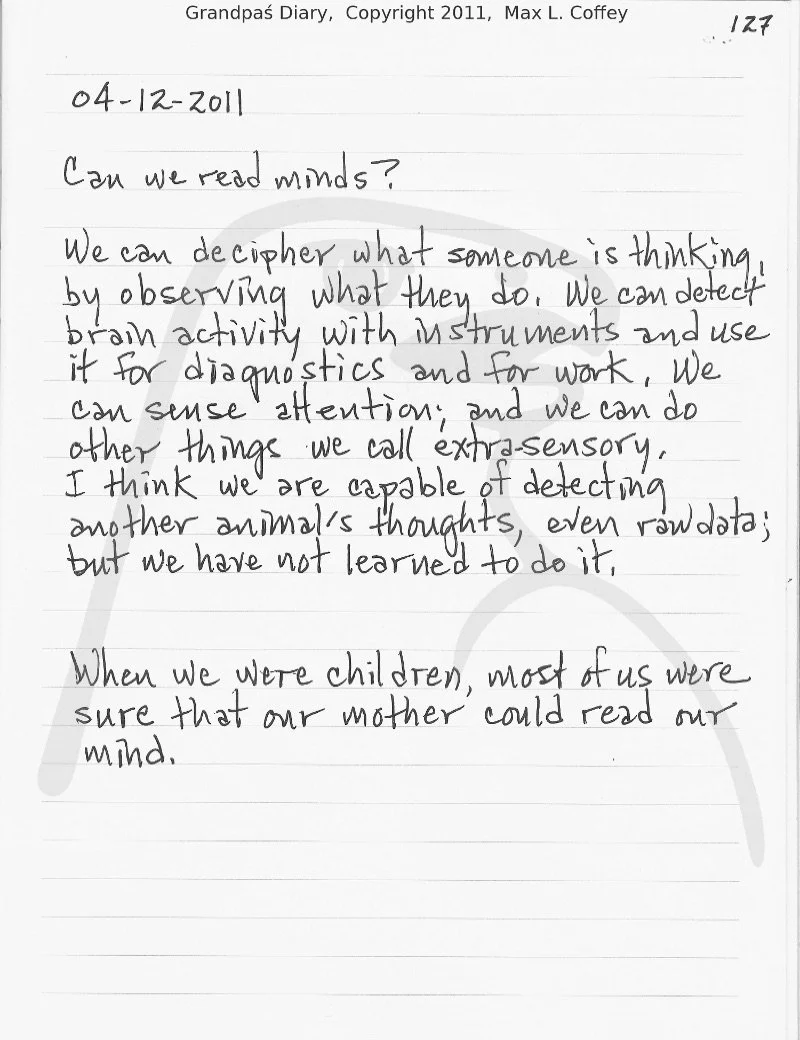 Grandpaś Diary, Copyright 2011, Max L. Coffey
127
04-12-2011
Can we read minds?
We can decipher what someone is thinking,
by observing what they do. We can detect
brain activity with instruments and use
it for diagnostics and for work. We
can sense attention; and we can do
other things we call extra-sensory.
I think we are capable of detecting
another animal's thoughts, even raw data;
but we have not learned to do it.
When we were children, most of us were
sure that our mother could read our
mind.